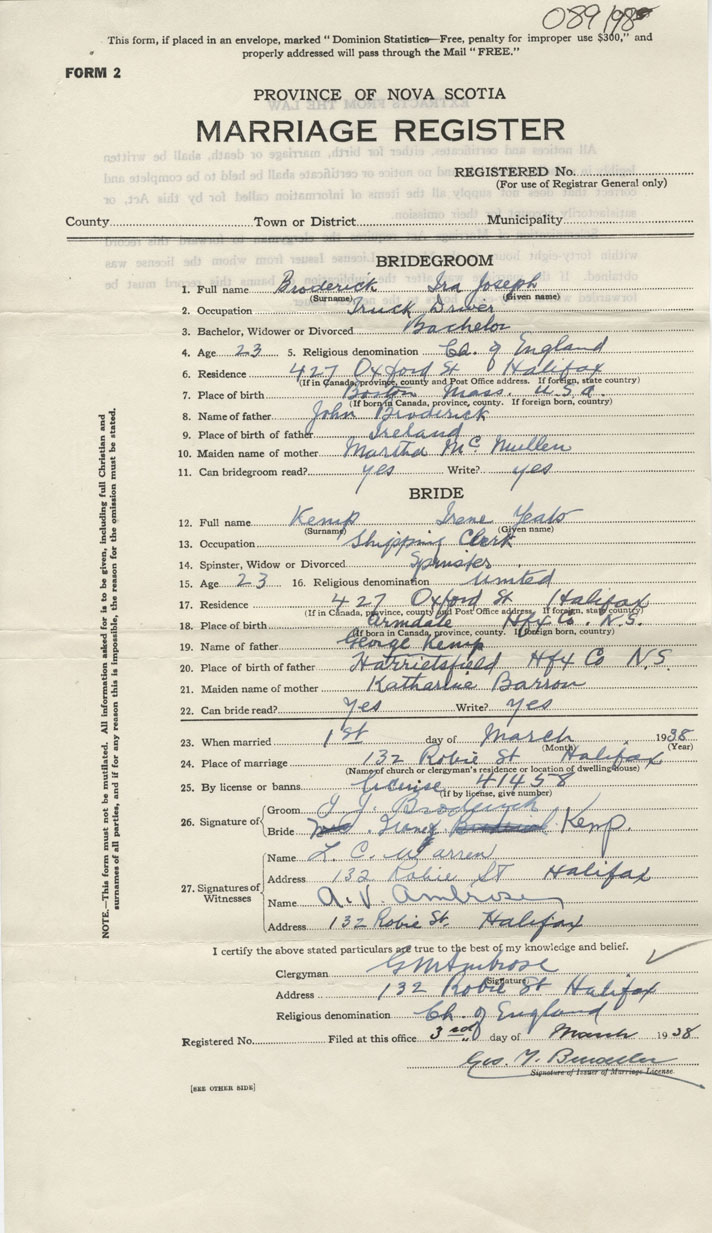 This form, if placed in an envelope, marked "Dominion Statistics—Free, penalty for improper use $300," and
properly addressed will pass through the Mail "FREE."
FORM 2
PROVINCE OF NOVA SCOTIA
MARRIAGE REGISTER
REGISTERED No.
(For use of Registrar General only)
County Town or District Municipality
BRIDEGROOM
1. Full name Broderick Ira Joseph
(Surname) (Given name)
2. Occupation Truck Driver
3. Bachelor, Widower or Divorced Bachelor
4. Age 23 5. Religious denomination Ch. of England
6. Residence 427 Oxford St Halifax
(If in Canada, province, county and Post Office address. If foreign, state country)
7. Place of birth Boston Mass. U.S.A.
(If born in Canada, province, county. If foreign born, country)
8. Name of father John Broderick
9. Place of birth of father Ireland
10. Maiden name of mother Martha McMullen
11. Can bridegroom read? yes Write? yes
BRIDE
12. Full name Kemp Irene Yeats
(Surname) (Given name)
13. Occupation Shipping Clerk
14. Spinster, Widow or Divorced Spinster
15. Age 23 16. Religious denomination United
17. Residence 427 Oxford St Halifax
(If in Canada, province, county and Post Office address. If foreign, state country)
18. Place of birth Armdale Hfx Co. N.S.
(If born in Canada, province, county. If foreign born, country)
19. Name of father George Kemp
20. Place of birth of father Harrietsfield Hfx Co N.S.
21. Maiden name of mother Katharine Barron
22. Can bride read? Yes Write? Yes
23. When married 1st day of March 1938
(Month) (Year)
24. Place of marriage 132 Robie St Halifax
(Name of church or clergyman's residence or location of dwelling house)
25. By license or banns License 41458
(If by license, give number)
26. Signature of
Groom I. J. Broderick
Bride Kemp.
27. Signatures of Witnesses
Name L. C. Warren
Address 132 Robie St Halifax
Name A. V. Ambrose
Address 132 Robie St. Halifax
I certify the above stated particulars are true to the best of my knowledge and belief.
Clergyman G M Ambrose
(Signature)
Address 132 Robie St Halifax
Religious denomination Ch. of England
Registered No. Filed at this office 3rd day of March 1938
Signature of Issuer of Marriage License.
[SEE OTHER SIDE]
NOTE.—This form must not be mutilated. All information asked for is to be given, including full Christian and
surnames of all parties, and if for any reason this is impossible, the reason for the omission must be stated.